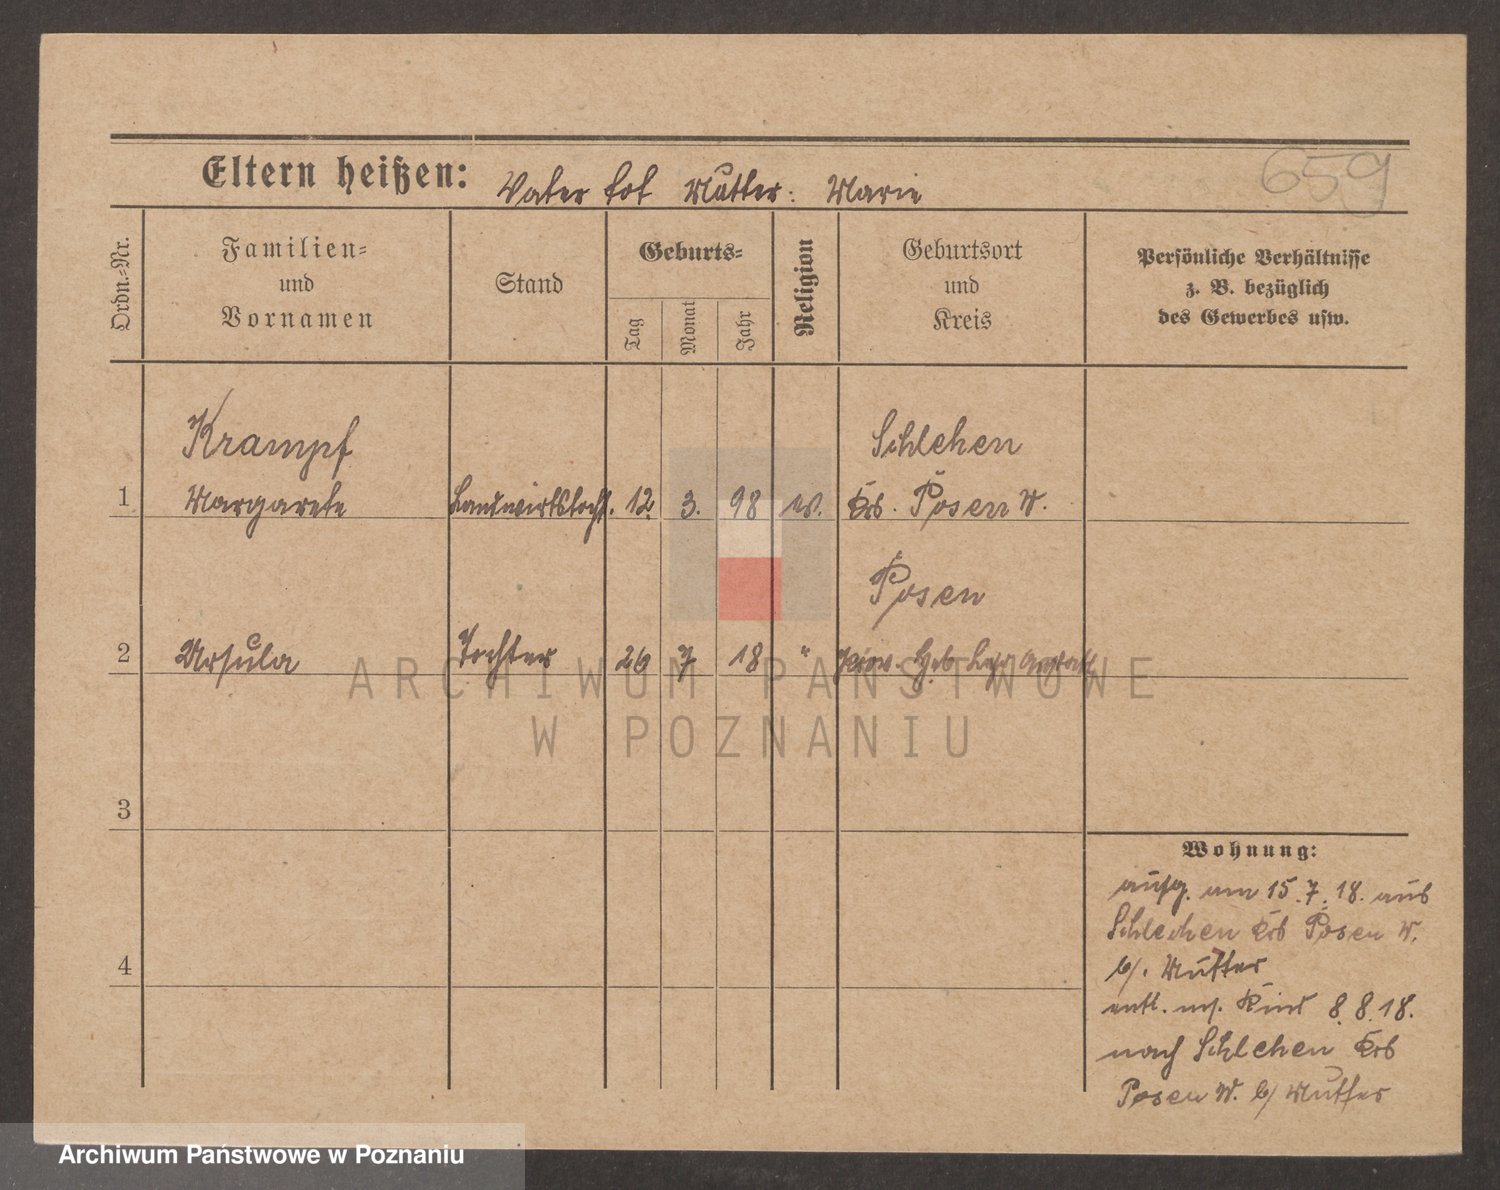 659
Eltern heißen: Vater tot Mutter: Marie
Ordn.-Nr.
Familien-
und
Vornamen
Stand
Geburts-
Tag
Monat
Jahr
Religion
Geburtsort
und
Kreis
Persönliche Verhältnisse
z. B. bezüglich
des Gewerbes usw.
Krampf
Schlehen
1 Margarete Landwirtstocht. 12. 3. 98 ev. Krs. Posen W.
Posen
2 Ursula Tochter 26 7 18 " Prov. Heb. Lehranstalt
3
4
Wohnung:
aufg. am 15.7.18. aus
Schlehen Krs Posen W.
b/. Mutter
entl. m/. Kind 8.8.18.
nach Schlehen Krs
Posen W. b/ Mutter
ARCHIWUM PAŃSTWOWE
W POZNANIU
Archiwum Państwowe w Poznaniu